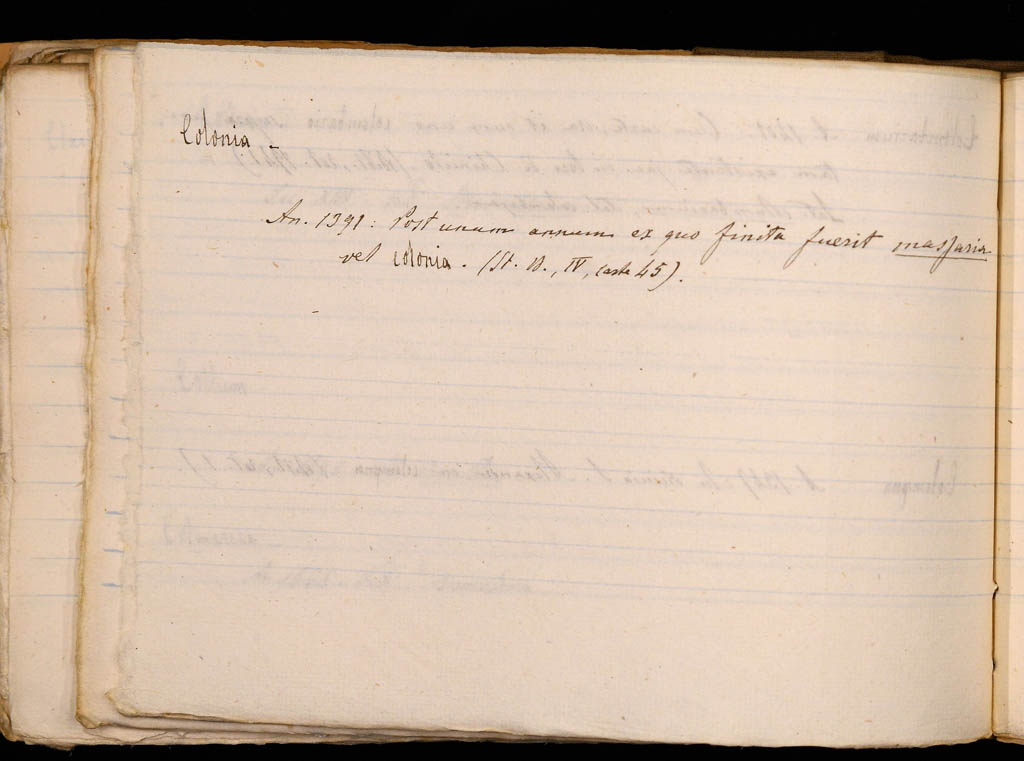 Colonia -
An. 1391: Post unum annum ex quo finita fuerit massaria
vel colonia. (St. B., IV, carte 45).